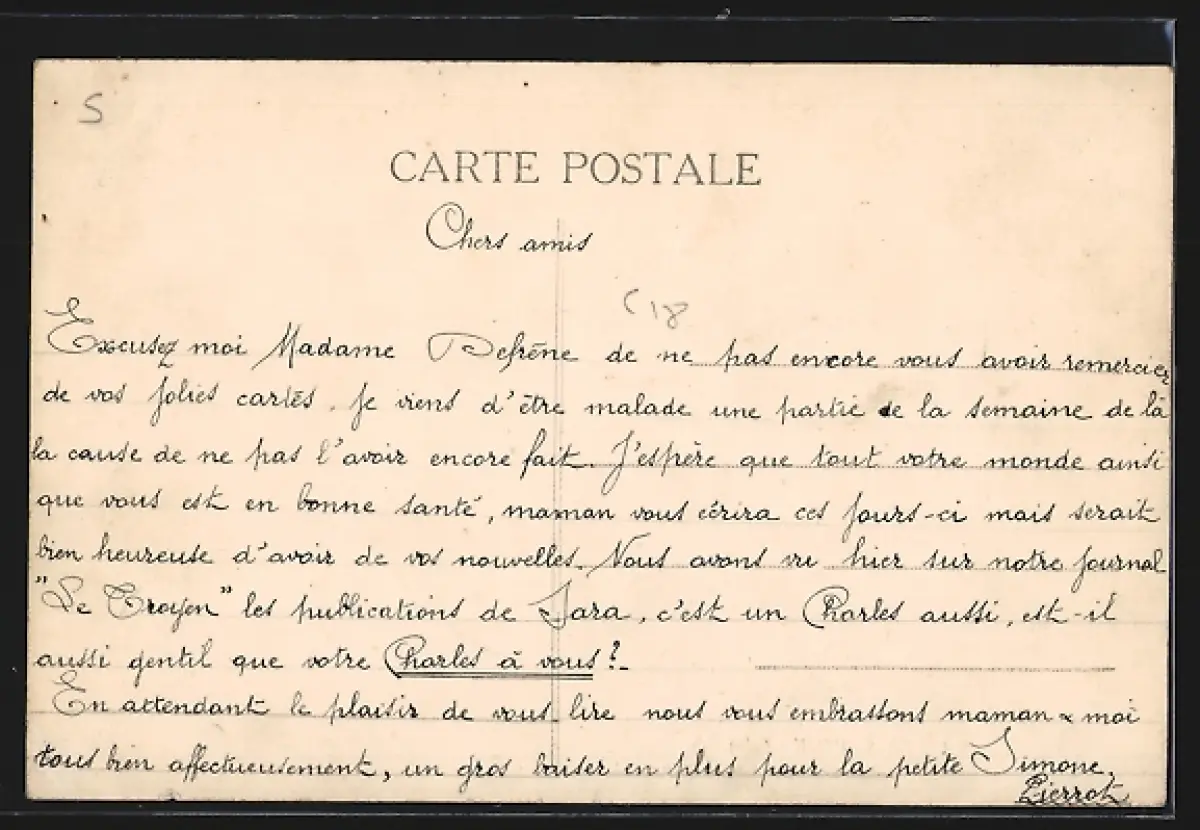 S
CARTE POSTALE
Chers amis
C18
Excusez moi Madame Defrêne de ne pas encore vous avoir remerciez
de vos jolies cartes. Je viens d'être malade une partie de la semaine de là
la cause de ne pas l'avoir encore fait. J'espère que tout votre monde ainsi
que vous est en bonne santé, maman vous écrira ces jours-ci mais serait
bien heureuse d'avoir de vos nouvelles. Nous avons vu hier sur notre journal
"Le Troyen" les publications de Sara, c'est un Charles aussi, est-il
aussi gentil que votre Charles à vous?
En attendant le plaisir de vous lire nous vous embrassons maman & moi
tous bien affectueusement, un gros baiser en plus pour la petite Simone.
Pierrot